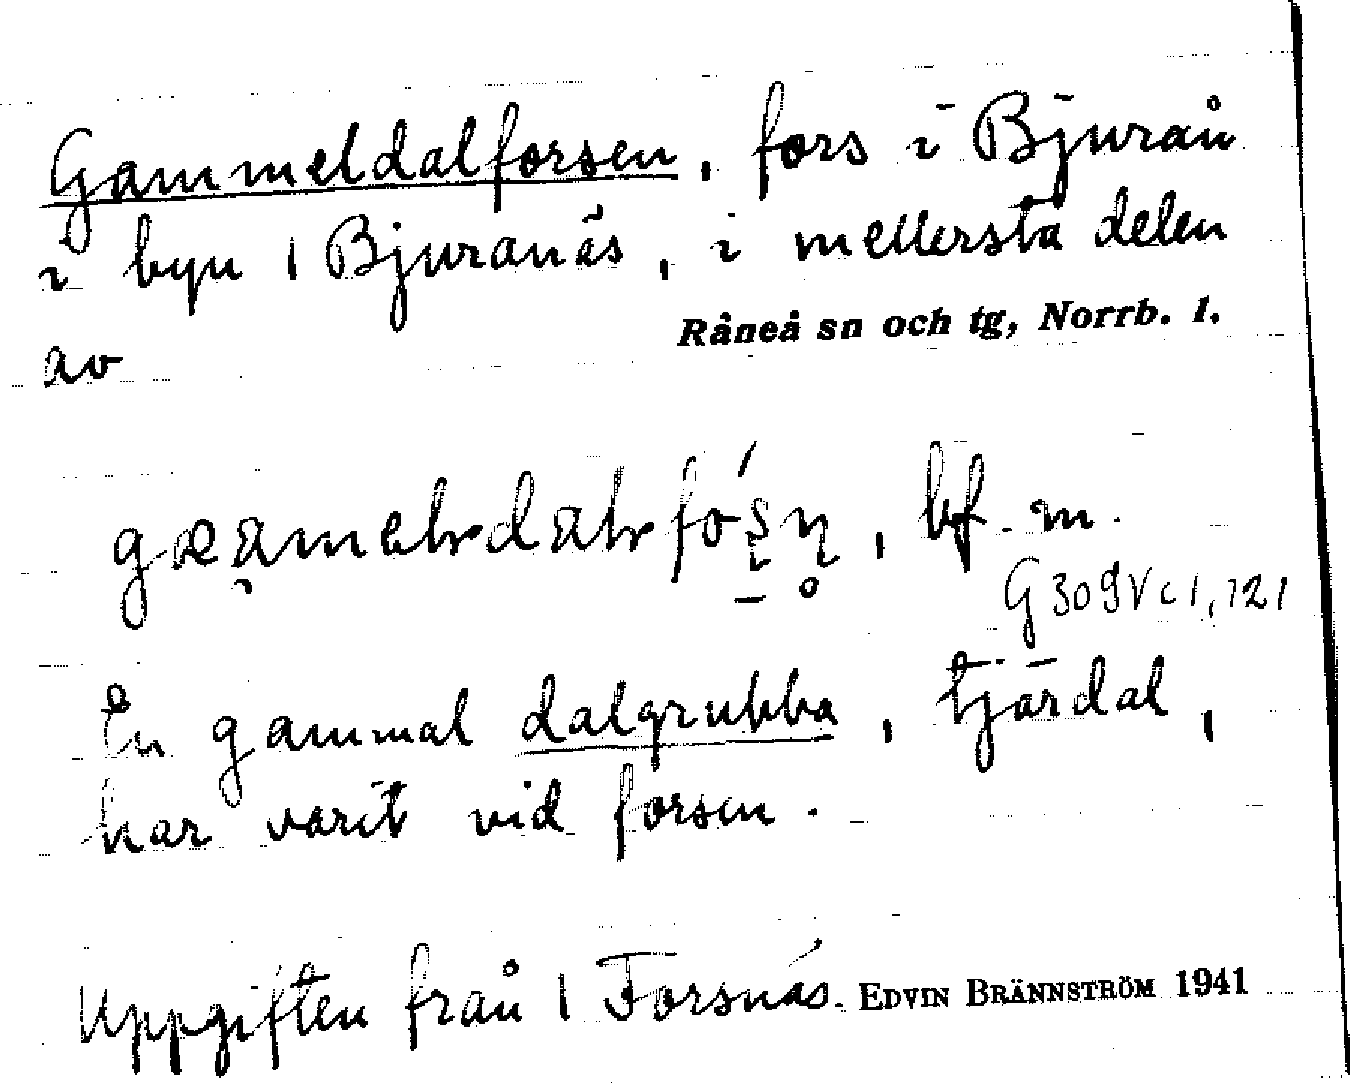 Gammeldalforsen, fors i Bjurån
i byn 1 Bjuranäs, i mellersta delen
av Råneå sn och tg, Norrb. l.
bf. m.
G 309 V c 1, 121
En gammal dalgrubba, tjärdal,
har varit vid forsen.
Uppgiften från 1 Forsnäs. EDVIN BRÄNNSTRÖM 1941